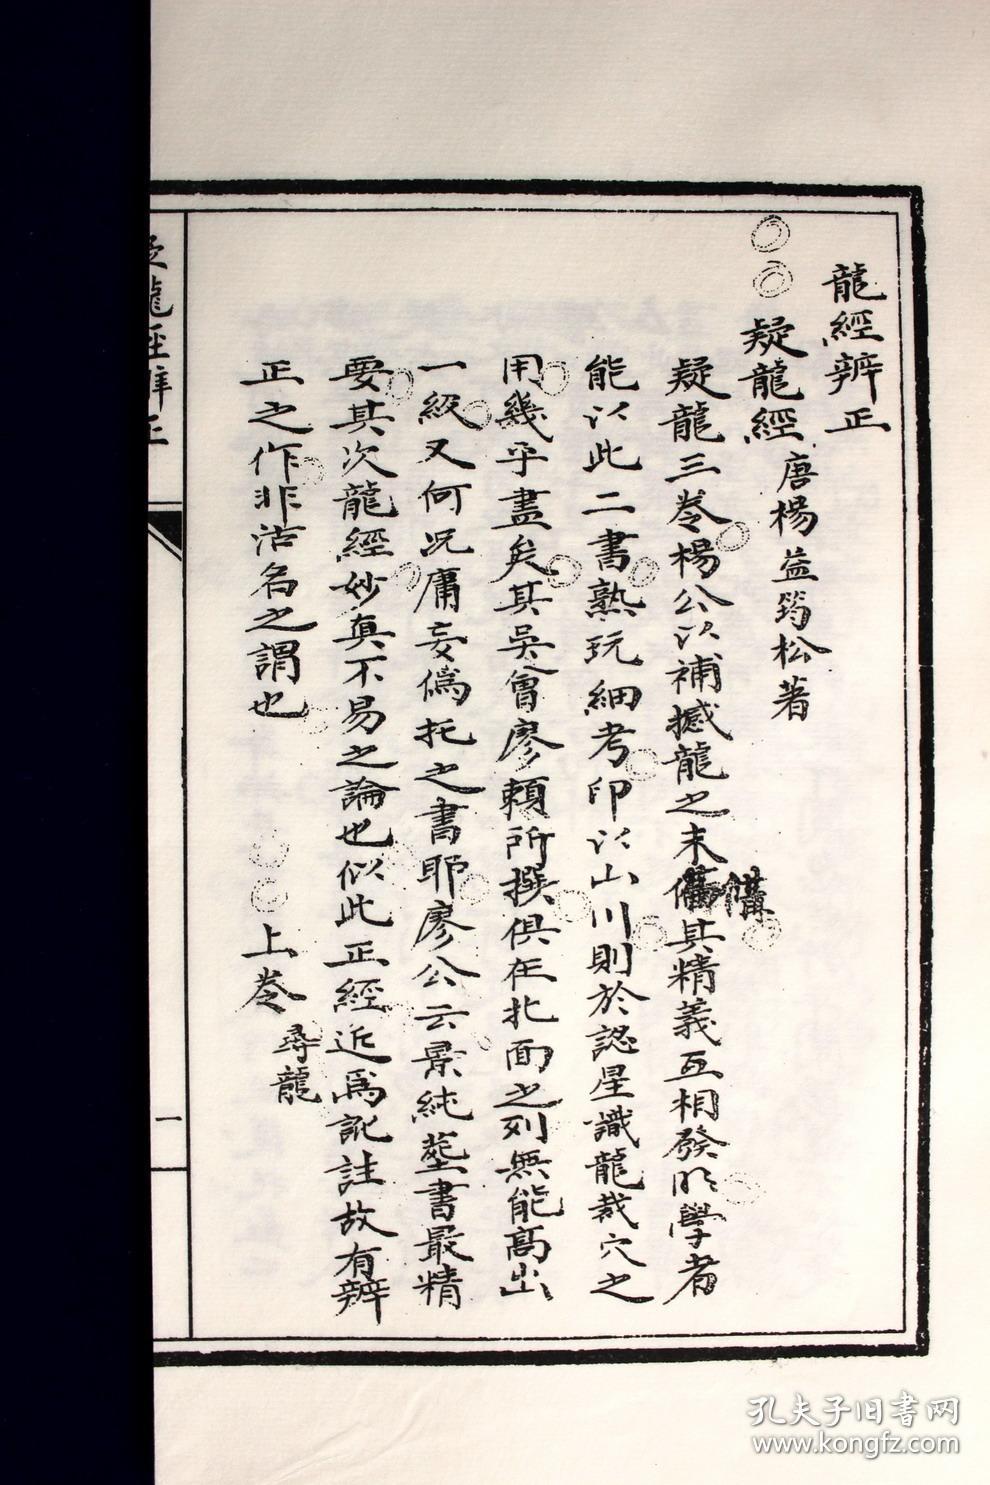 龍經辨正
疑龍經 唐楊益筠松著
疑龍三卷楊公以補撼龍之未備其精義互相發明學者
備
能以此二書熟玩細考印以山川則於認星識龍裁穴之
用幾乎盡矣其吳曾廖賴所撰俱在北面之列無能高出
一級又何况庸妄僞托之書耶廖公云景純塟書最精
要其次龍經妙真不易之論也似此正經近爲訛註故有辨
正之作非沽名之謂也
上卷 尋龍
龍經
一
孔夫子旧書网
www.kongfz.com